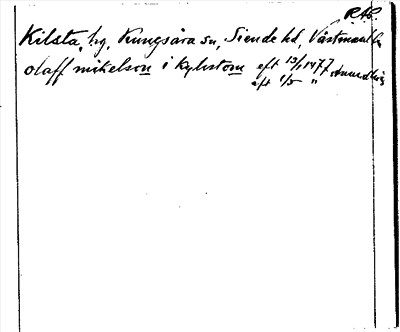 R.A.P.
Kilsta, hg, Kungsåra sn, Siende hd, Västmanl. l.
olaff mikelson i kylzstom eft 13/1 1477 Arundhus
eft 1/5 "